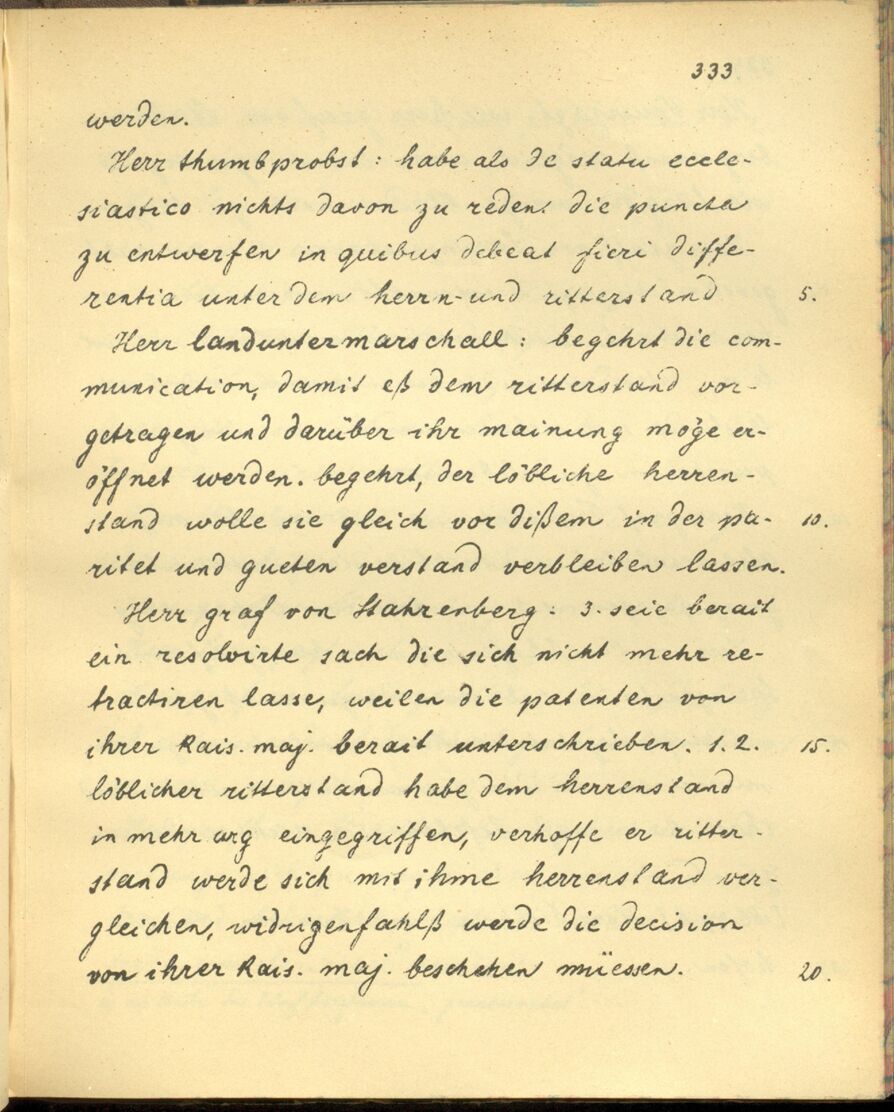 333
werden.
Herr thumbprobst: habe als de statu eccle-
siastico nichts davon zu reden. die puncta
zu entwerfen in quibus debeat fieri diffe-
rentia unter dem herrn- und ritterstand 5.
Herr landuntermarschall: begehrt die com-
munication, damit eß dem ritterstand vor-
getragen und darüber ihr mainung möge er-
öffnet werden. begehrt, der löbliche herren-
stand wolle sie gleich vor dißem in der pa- 10.
ritet und gueten verstand verbleiben lassen.
Herr graf von Stahrenberg: 3. seie berait
ein resolvirte sach die sich nicht mehr re-
tractiren lasse, weilen die patenten von
ihrer Kais. maj. berait unterschrieben. 1. 2. 15.
löblicher ritterstand habe dem herrenstand
in mehr arg eingegriffen, verhoffe er ritter-
stand werde sich mit ihme herrenstand ver-
gleichen, widrigenfahlß werde die decision
von ihrer Kais. maj. beschehen müessen. 20.